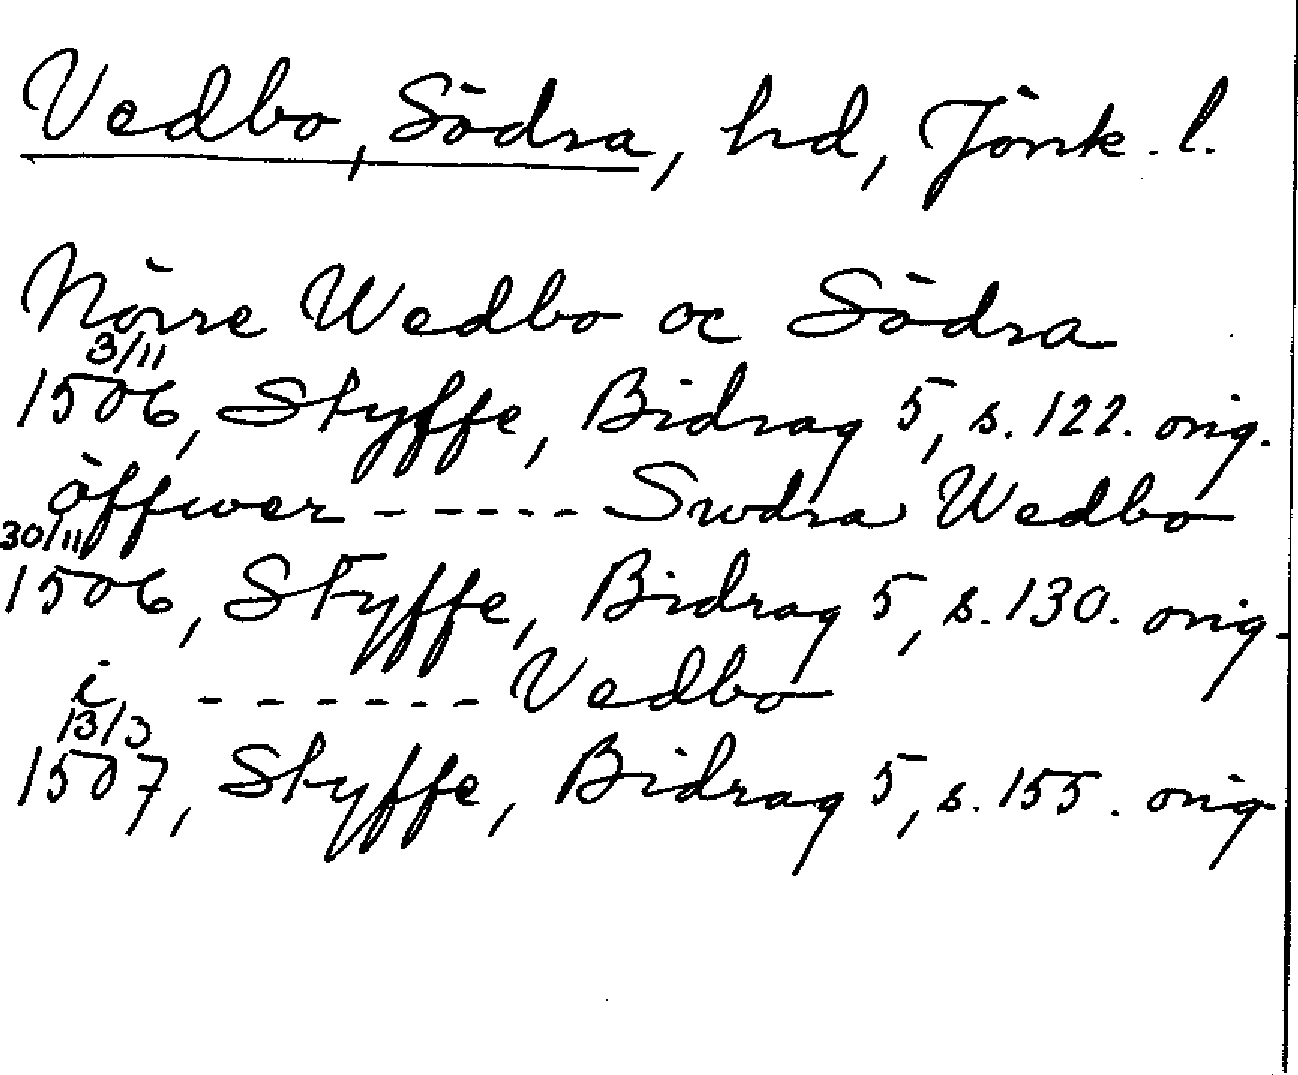 Vedbo, Södra, hd, Jönk. l.
Nörre Wedbo oc Södra
3/11
1506, Styffe, Bidrag 5, s. 122. orig.
öffwer - - - - - Swdra Wedbo
30/11
1506, Styffe, Bidrag 5, s. 130. orig.
i - - - - - - Vedbo
13/3
1507, Styffe, Bidrag 5, s. 155. orig